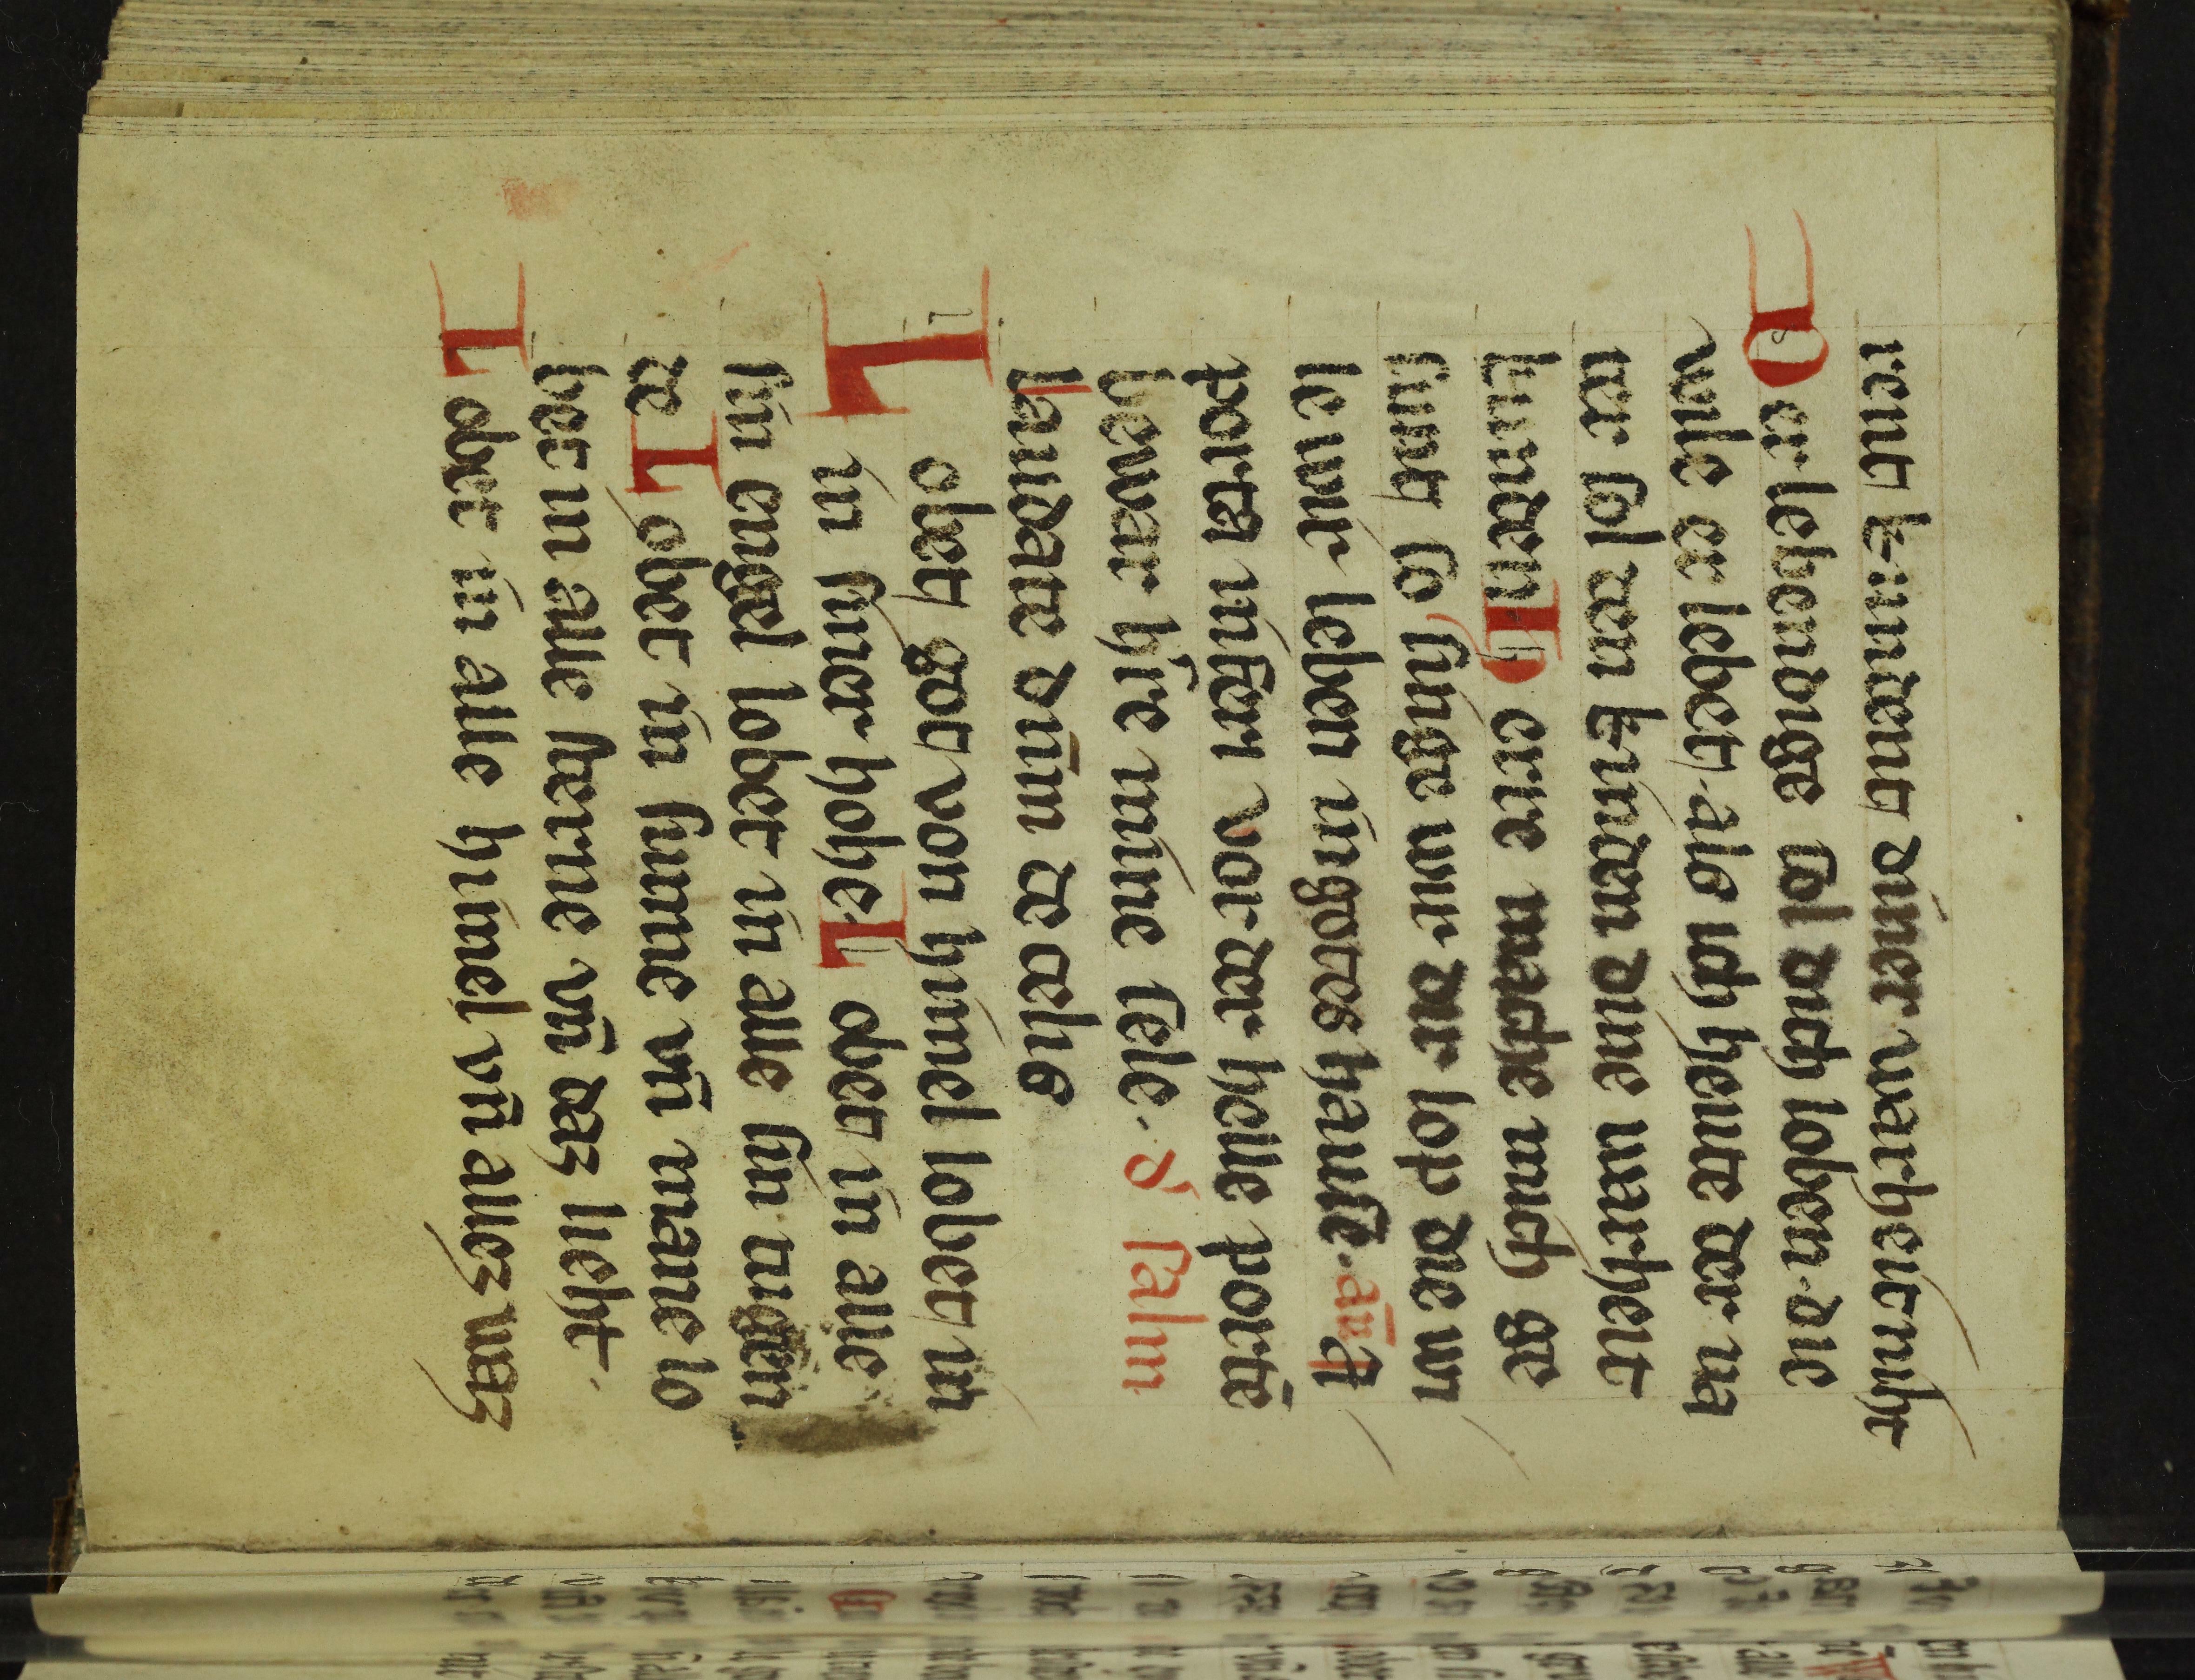 teut kunden diner warheit niht
Der lebendige sol dich loben. die
wile er lebet. alse ich heute der va
ter sol den kinden dine warheit
kunden. Herre mache mich ge
sunt so singe wir dir lop die wi
le wir leben in gotes hause. an̄ A
porta inferi vor der helle porte
bewar hˀre mine sele. psalm
Laudate dn̄m de celis
Lobet got von himel lobet in
in siner hohe. Lobet in alle
sin engel lobet in alle sin tugen
de Lobet in sunne vn̄ mane lo
bet in alle sterne vn̄ daz lieht.
Lobet in alle himel vn̄ allez waz